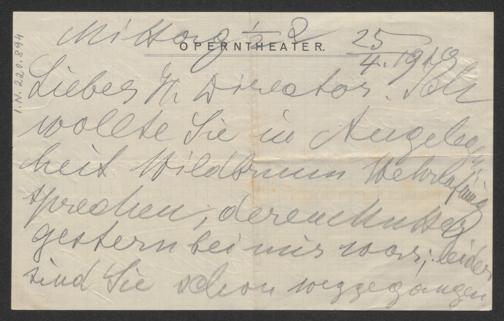 Mittag ½ 2
OPERNTHEATER.
25
4. 1919
I.N. 229.894
Lieber H. Director. Ich
wollte Sie in Angelegen
heit Wildbrunn
sprechen, deren Mutter
gestern bei mir war; leider
sind Sie schon weggegangen